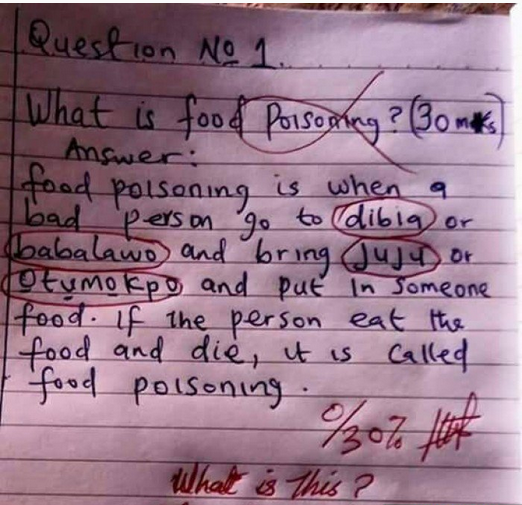 Question No 1.
What is food Poisoning? (30 mks)
Answer:
food poisoning is when a
bad person go to dibia or
babalawo and bring juju or
Otumokpo and put in someone
food. if the person eat the
food and die, it is called
food poisoning.
0/30%
What is this?